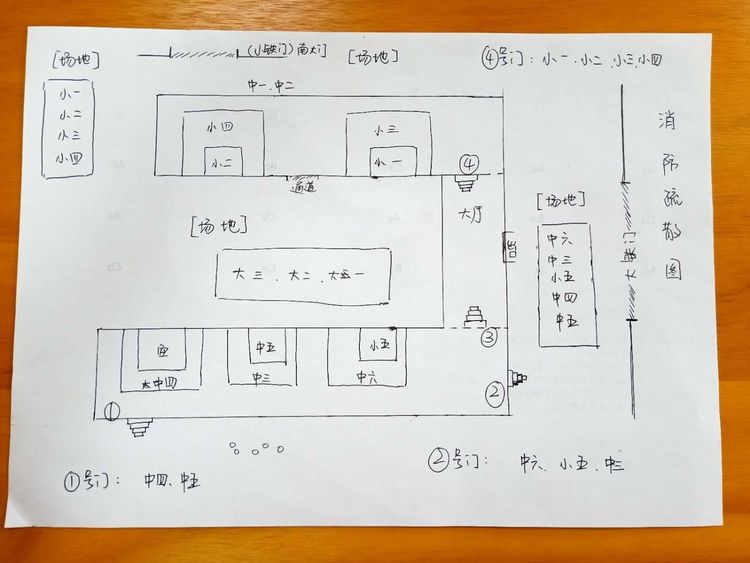 [场地]
(小铁门) 南大门
[场地]
④号门: 小一、小二、小三、小四
小一
小二
小三
小四
中一、中二
小四
小二
小三
小一
④
通道
大厅
[场地]
大三、大二、大五一
[场地]
中六
中三
小五
中四
中五
大铁门
消防疏散图
中五
小五
大中四
中三
中六
③
②
①
①号门: 中四、中五
②号门: 中六、小五、中三